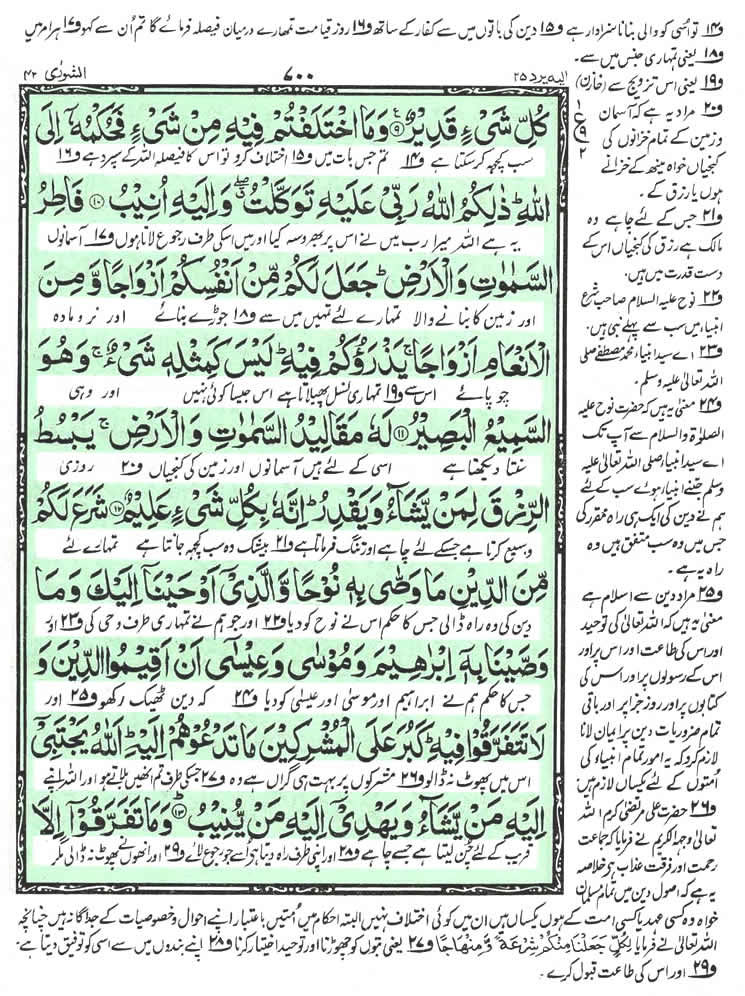 و۱۴ تو اسی کو والی بنانا سزاوار ہے و۱۵ دین کی باتوں میں سے کفار کے ساتھ و۱۶ روز قیامت تمھارے درمیان فیصلہ فرمائے گا تم اُن سے کہو و۱۷ ہر امر میں
و۱۸ یعنی تمہاری جنس میں سے۔
الیہ یرد ۲۵
۷۰۰
الشورٰی ۴۲
و۱۹ یعنی اس تزویج سے (خازن)
و۲۰ مراد یہ ہے کہ آسمان
و زمین کے تمام خزانوں کی
کنجیاں خواہ مینھ کے خزانے
ہوں یا رزق کے۔
و۲۱ جس کے لئے چاہے وہ
مالک ہے رزق کی کنجیاں اس کے
دست قدرت میں ہیں۔
و۲۲ نوح علیہ السلام صاحب شرع
انبیا میں سب سے پہلے نبی ہیں۔
و۲۳ اے سید انبیا محمد مصطفےٰ صلی
اللہ تعالیٰ علیہ وسلم۔
و۲۴ معنی یہ ہیں کہ حضرت نوح علیہ
الصلوٰۃ والسلام سے آپ تک
اے سید انبیا صلی اللہ تعالیٰ علیہ
وسلم جتنے انبیا ہوئے سب کے لئے
ہم نے دین کی ایک ہی راہ مقرر کی
جس میں وہ سب متفق ہیں وہ
راہ یہ ہے۔
و۲۵ مراد دین سے اسلام ہے
معنی یہ ہیں کہ اللہ تعالیٰ کی توحید
اور اس کی طاعت اور اس پر اور
اس کے رسولوں پر اور اس کی
کتابوں پر اور روز جزا پر اور باقی
تمام ضروریات دین پر ایمان لانا
لازم کرو کہ یہ امور تمام انبیاء کی
اُمتوں کے لئے یکساں لازم ہیں
و۲۶ حضرت علی مرتضیٰ کرم اللہ
تعالیٰ وجہہ الکریم نے فرمایا کہ جماعت
رحمت اور فرقت عذاب ہے خلاصہ
یہ ہے کہ اصول دین میں تمام مسلمان
كُلِّ شَيْءٍ قَدِيْرٌ ۹ وَمَا اخْتَلَفْتُمْ فِيْهِ مِنْ شَيْءٍ فَحُكْمُهٗۤ اِلَى
سب کچھ کر سکتا ہے و۱۴ تم جس بات میں و۱۵ اختلاف کرو تو اس کا فیصلہ اللہ کے سپرد ہے و۱۶
اللّٰهِ ؕ ذٰلِكُمُ اللّٰهُ رَبِّيْ عَلَيْهِ تَوَكَّلْتُ ۖ وَاِلَيْهِ اُنِيْبُ ۱۰ فَاطِرُ
یہ ہے اللہ میرا رب میں نے اس پر بھروسہ کیا اور میں اسکی طرف رجوع لاتا ہوں و۱۷ آسمانوں
السَّمٰوٰتِ وَالْاَرْضِ ؕ جَعَلَ لَكُمْ مِّنْ اَنْفُسِكُمْ اَزْوَاجًا وَّمِنَ
اور زمین کا بنانے والا تمہارے لئے تمہیں میں سے و۱۸ جوڑے بنائے اور نر و مادہ
الْاَنْعَامِ اَزْوَاجًا ۚ يَذْرَؤُكُمْ فِيْهِ ؕ لَيْسَ كَمِثْلِهٖ شَيْءٌ ۚ وَهُوَ
چوپائے اس سے و۱۹ تمہاری نسل پھیلاتا ہے اس جیسا کوئی نہیں اور وہی
السَّمِيْعُ الْبَصِيْرُ ۱۱ لَهٗ مَقَالِيْدُ السَّمٰوٰتِ وَالْاَرْضِ ۚ يَبْسُطُ
سنتا دیکھتا ہے اسی کے لئے ہیں آسمانوں اور زمین کی کنجیاں و۲۰ روزی
الرِّزْقَ لِمَنْ يَّشَآءُ وَيَقْدِرُ ؕ اِنَّهٗ بِكُلِّ شَيْءٍ عَلِيْمٌ ۱۲ شَرَعَ لَكُمْ
وسیع کرتا ہے جسکے لئے چاہے اور تنگ فرماتا ہے و۲۱ بیشک وہ سب کچھ جانتا ہے تمہارے لئے
مِّنَ الدِّيْنِ مَا وَصّٰى بِهٖ نُوْحًا وَّالَّذِيْۤ اَوْحَيْنَاۤ اِلَيْكَ وَمَا
دین کی وہ راہ ڈالی جس کا حکم اس نے نوح کو دیا و۲۲ اور جو ہم نے تمہاری طرف وحی کی و۲۳ اور
وَصَّيْنَا بِهٖۤ اِبْرٰهِيْمَ وَمُوْسٰى وَعِيْسٰۤى اَنْ اَقِيْمُوا الدِّيْنَ وَ
جس کا حکم ہم نے ابراہیم اور موسیٰ اور عیسیٰ کو دیا و۲۴ کہ دین ٹھیک رکھو و۲۵ اور
لَا تَتَفَرَّقُوْا فِيْهِ ؕ كَبُرَ عَلَى الْمُشْرِكِيْنَ مَا تَدْعُوْهُمْ اِلَيْهِ ؕ اَللّٰهُ يَجْتَبِيْۤ
اس میں پھوٹ نہ ڈالو و۲۶ مشرکوں پر بہت ہی گراں ہے وہ و۲۷ جسکی طرف تم انھیں بلاتے ہو اور اللہ اپنے
اِلَيْهِ مَنْ يَّشَآءُ وَيَهْدِيْۤ اِلَيْهِ مَنْ يُّنِيْبُ ۱۳ وَمَا تَفَرَّقُوْۤا اِلَّا
قریب کے لئے چن لیتا ہے جسے چاہے و۲۸ اور اپنی طرف راہ دیتا ہے اُسے جو رجوع لائے و۲۹ اور انھوں نے پھوٹ نہ ڈالی مگر
خواہ وہ کسی عہد یا کسی امت کے ہوں یکساں ہیں ان میں کوئی اختلاف نہیں البتہ احکام میں اُمتیں باعتبار اپنے احوال و خصوصیات کے جداگانہ ہیں چنانچہ
اللہ تعالیٰ نے فرمایا لِكُلٍّ جَعَلْنَا مِنْكُمْ شِرْعَةً وَّمِنْهَاجًا و۲۷ یعنی بتوں کو چھوڑنا اور توحید اختیار کرنا و۲۸ اپنے بندوں میں سے اسی کو توفیق دیتا ہے۔
و۲۹ اور اس کی طاعت قبول کرے۔